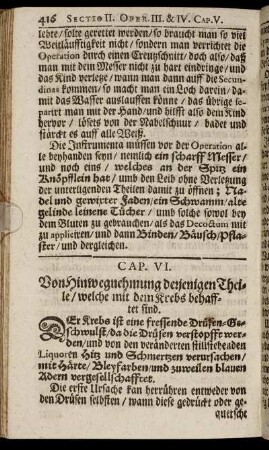 416 Sectio II. Oper. III. & IV. Cap. V.
lebte / solte gerettet werden / so braucht man so viel
Weitläufftigkeit nicht / sondern man verrichtet die
Operation durch einen Creutzschnitt / doch also / daß
man mit dem Messer nicht zu hart eindringe / und
das Kind verletze / wann man dann auff die Secun-
dinas kommen / so macht man ein Loch darein / da-
mit das Wasser auslauffen könne / das übrige se-
parirt man mit der Hand / und hilfft also dem Kind
hervor / löset von der Nabelschnur / badet und
stärckt es auff alle Weiß.
Die Instrumenta müssen vor der Operation al-
le beyhanden seyn / nemlich ein scharff Messer /
und noch eins / welches an der Spitz ein
Knöpfflein hat / und den Leib ohne Verletzung
der unterligenden Theilen damit zu öffnen; Na-
del und gewixter Faden / ein Schwamm / alte
gelinde leinene Tücher / umb solche sowol bey
dem Bluten zu gebrauchen / als das Decoctum mit
zu appliciren / und dann Binden / Bäusch / Pfla-
ster / und dergleichen.
CAP. VI.
Von Hinwegnehmung derjenigen Thei-
le / welche mit dem Krebs behaff-
tet sind.
DEr Krebs ist eine fressende Drüsen-Ge-
schwulst / da die Drüsen verstopfft wer-
den / und von den veränderten stillstehenden
Liquoren Hitz und Schmertzen verursachen /
mit Härte / Bleyfarben / und zuweilen blauen
Adern vergesellschafftet.
Die erste Ursache kan herrühren entweder von
den Drüsen selbsten / wann diese gedrückt oder ge-
quetscht